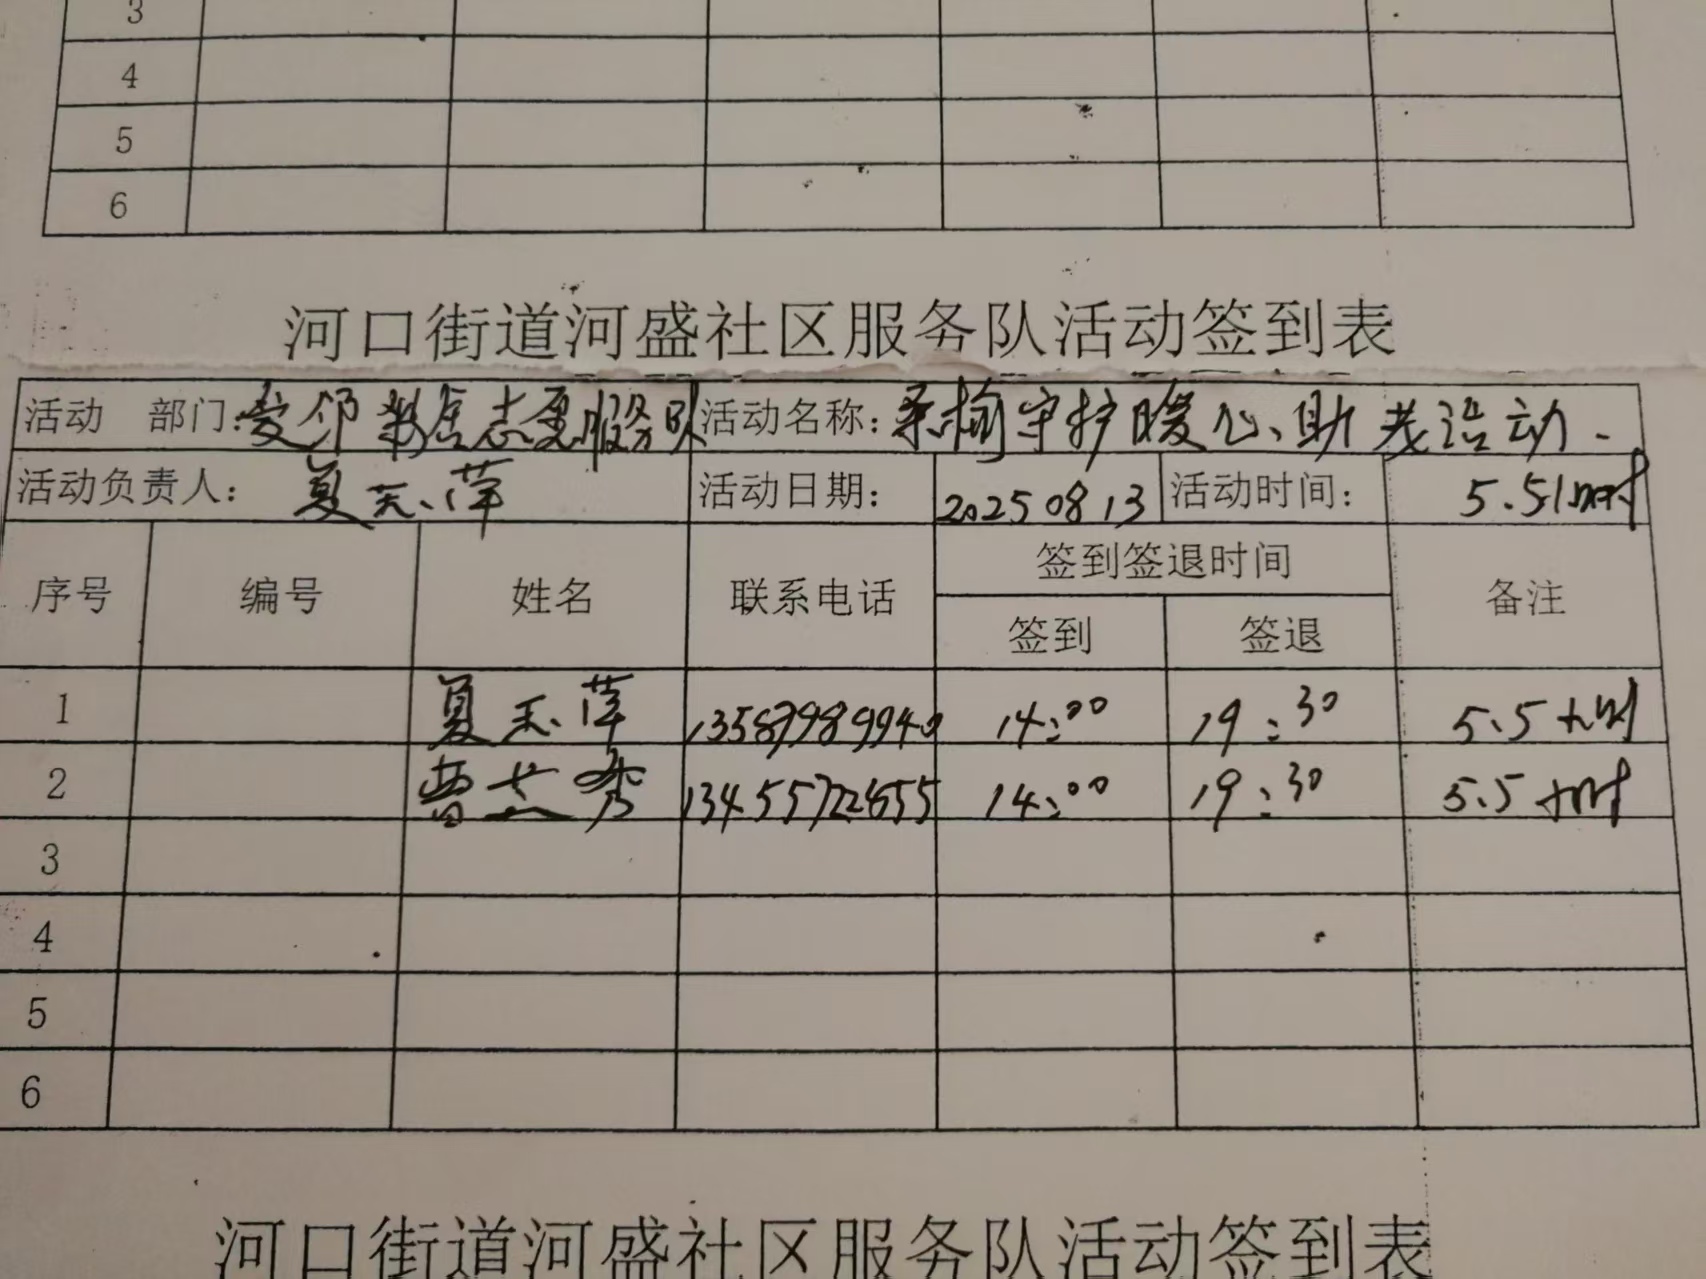 3
4
5
6
河口街道河盛社区服务队活动签到表
活动 部门:爱邻 志愿服务队 活动名称:桑榆守护暖心、助老活动.
活动负责人: 夏 萍 活动日期: 20250813 活动时间: 5.5小时
序号 编号 姓名 联系电话 签到签退时间 备注
签到 签退
1 夏 萍 14:00 19:30 5.5小时
2 曹 秀 14:00 19:30 5.5小时
3
4
5
6
河口街道河盛社区服务队活动签到表